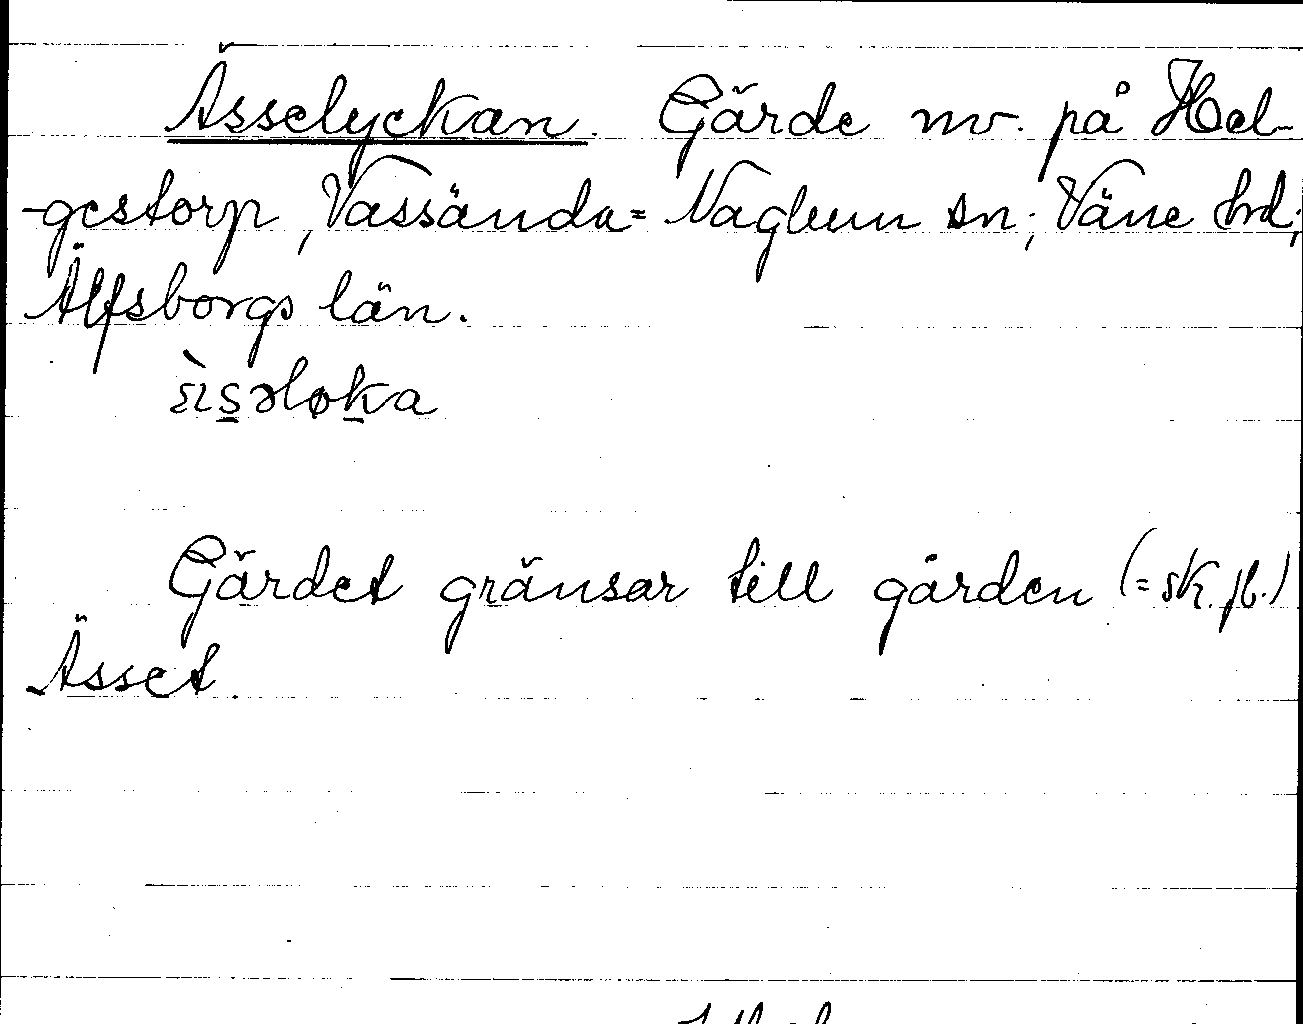 Ässelyckan. Gärde nv. på Hel-
-gestorp, Vassända=Naglum sn; Väne hd;
Älfsborgs län.
Gärdet gränsar till gården (=sk. jb.)
Ässet.